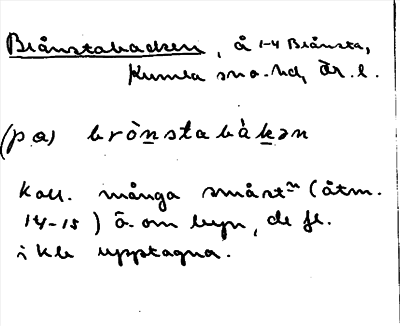 Brånstabacken, å 1-4 Brånsta,
Kumla sn o. hd, Är. l.
(på) brònstabàkən
Koll. många småst:n (åtm.
14-15) ö. om byn, de fl.
i kle upptagna.